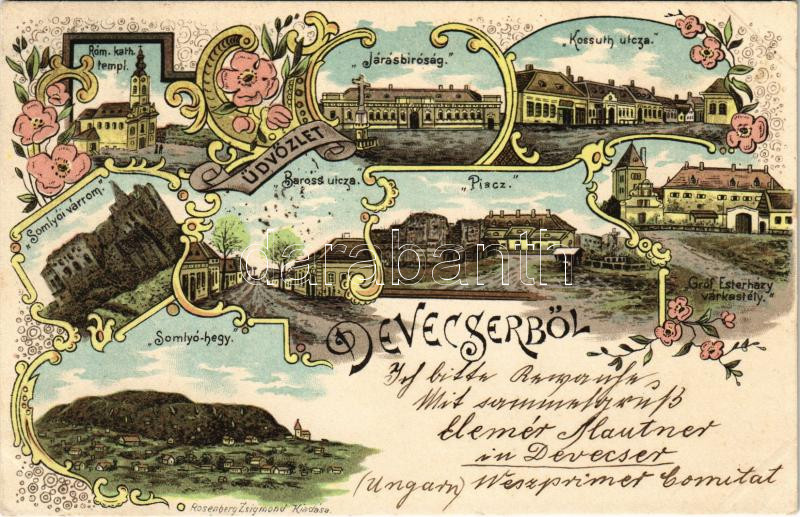 Róm. kath.
templ.
"Járásbiróság."
"Kossuth utcza."
ÜDVÖZLET
"Baross utcza."
"Piacz."
"Somlyói várrom."
"Gróf Esterházy
várkastély."
"Somlyó-hegy."
DEVECSERBŐL
darabanth
Ich bitte Rewanche
Mit sammelgruß
Elemér Mautner
in Devecser
(Ungarn) Weszprimer Comitat
Rosenberg Zsigmond Kiadasa.